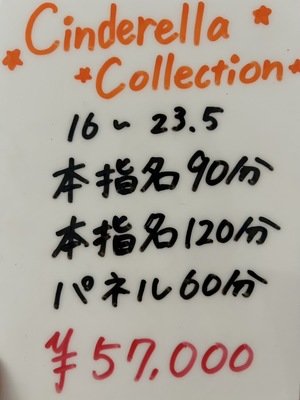 Cinderella
Collection
16〜23.5
本指名90分
本指名120分
パネル60分
¥57,000